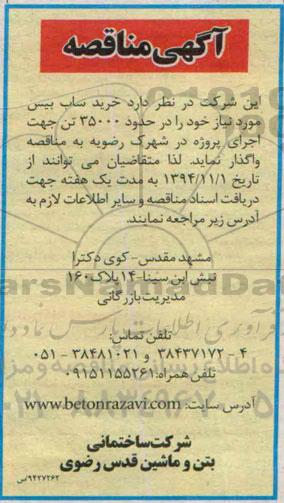 آگهی مناقصه
این شرکت در نظر دارد خرید ساب بیس
مورد نیاز خود را در حدود ۳۵۰۰۰ تن جهت
اجرای پروژه در شهرک رضویه به مناقصه
واگذار نماید. لذا متقاضیان می توانند از
تاریخ ۱۳۹۴/۱۱/۱ به مدت یک هفته جهت
دریافت اسناد مناقصه و سایر اطلاعات لازم به
آدرس زیر مراجعه نمایند.
مشهد مقدس - کوی دکترا
نبش ابن سینا - ۱۴ پلاک ۱۶۰
مدیریت بازرگانی
تلفن تماس:
۴ - ۳۸۴۳۷۱۷۲ و ۳۸۴۸۱۰۲۱ - ۰۵۱
تلفن همراه: ۰۹۱۵۱۱۵۵۲۶۱
آدرس سایت: www.betonrazavi.com
شرکت ساختمانی
بتن و ماشین قدس رضوی
۹۴۲۷۲۶۲/س